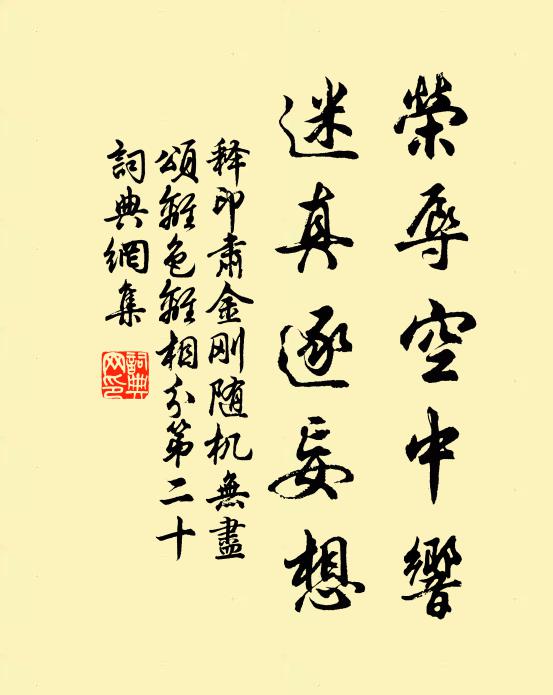 榮辱空中響
迷真逐妄想
释印肃金刚随机無盡
頌離色離相分第二十
詞典網集
詞典
网印